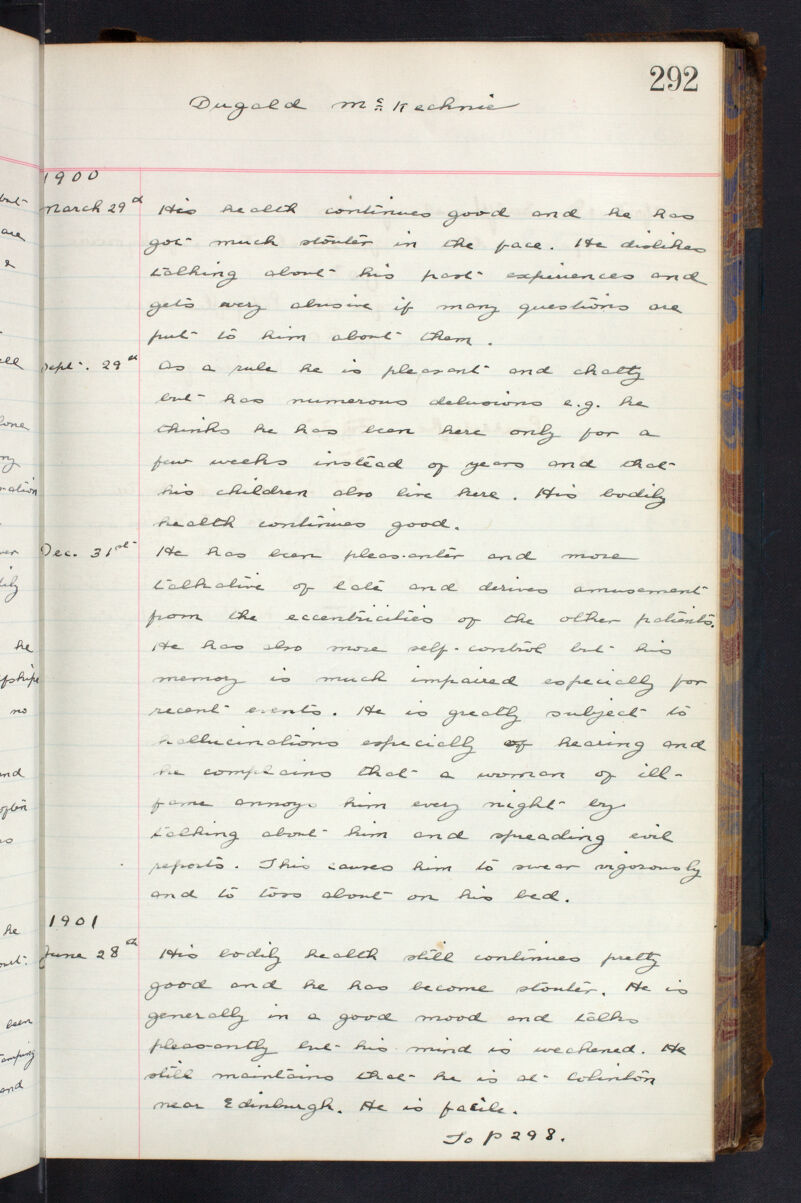 292
Dugald McKechnie
1900
March 29th His health continues good and he has
got much stouter in the face. He dislikes
talking about his past experiences and
gets very abusive if many questions are
put to him about them.
Sept. 29th As a rule he is pleasant and chatty
but has numerous delusions e.g. he
thinks he has been here only for a
few weeks instead of years and that
his children also live here. His bodily
health continues good.
Dec. 31st He has been pleasanter and more
talkative of late and derives amusement
from the eccentricities of the other patients.
He has also more self-control but his
memory is much impaired especially for
recent events. He is greatly subject to
hallucinations especially of hearing and
he complains that a woman of ill-
fame annoys him every night by
talking about him and spreading evil
reports. This causes him to swear vigorously
and to toss about on his bed.
1901
June 28th His bodily health still continues pretty
good and he has become stouter. He is
generally in a good mood and talks
pleasantly but his mind is weakened. He
still maintains that he is at Colinton
near Edinburgh. He is facile.
To P 298.